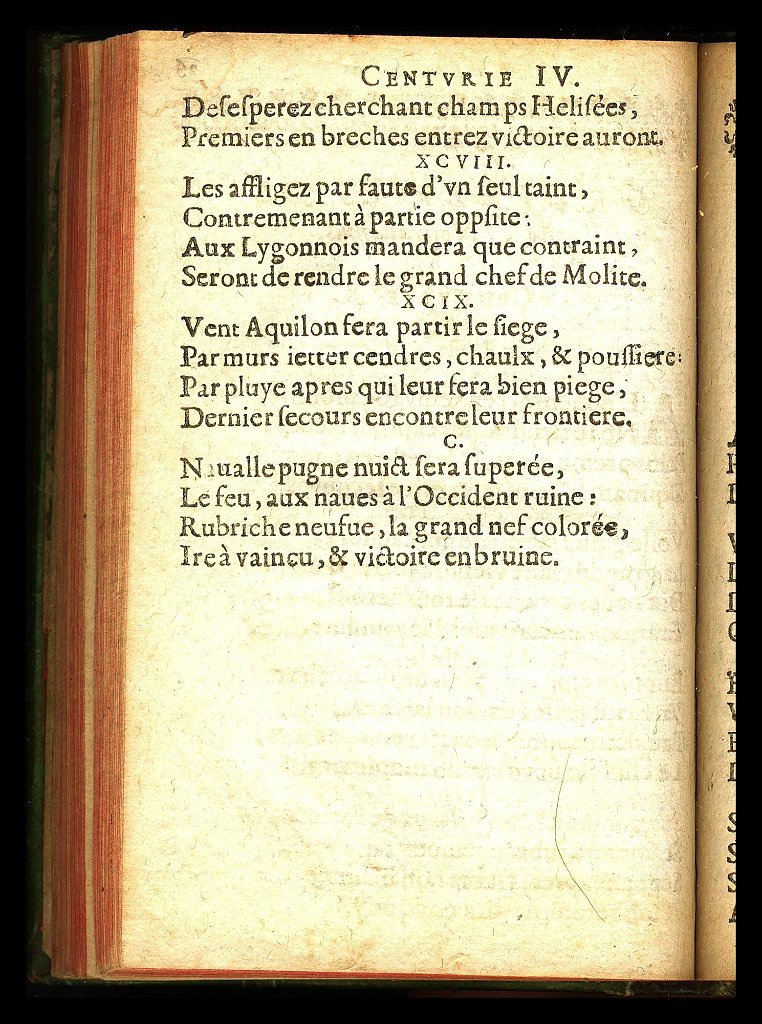 CENTVRIE IV.
Deſeſperez cherchant champs Heliſées,
Premiers en breches entrez victoire auront.
XCVIII.
Les affligez par faute d'vn ſeul taint,
Contremenant à partie oppſite:
Aux Lygonnois mandera que contraint,
Seront de rendre le grand chef de Molite.
XCIX.
Vent Aquilon fera partir le ſiege,
Par murs ietter cendres, chaulx, & pouſſiere:
Par pluye apres qui leur fera bien piege,
Dernier ſecours encontre leur frontiere.
C.
Naualle pugne nuict ſera ſuperée,
Le feu, aux naues à l'Occident ruine:
Rubriche neufue, la grand nef colorée,
Ire à vaincu, & victoire en bruine.